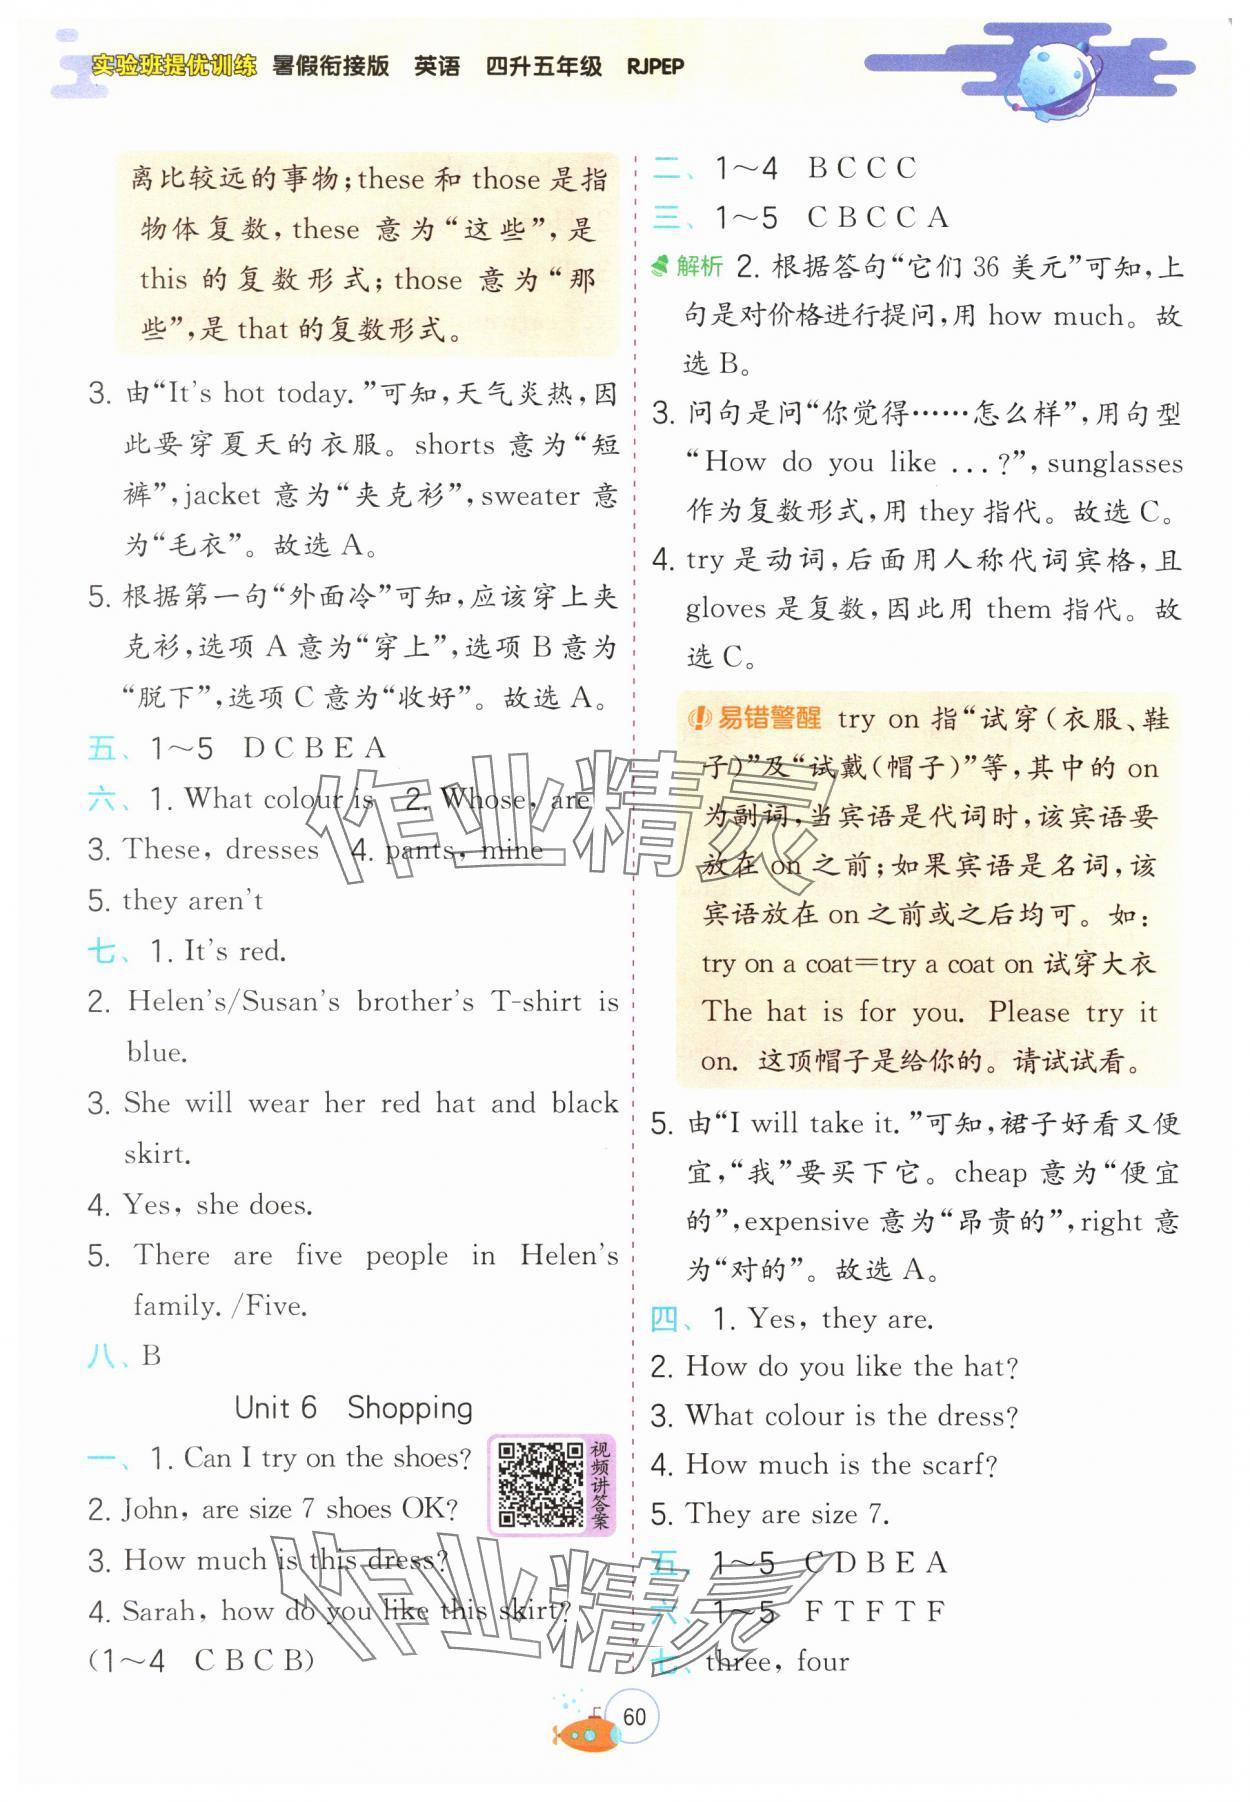 实验班提优训练 暑假衔接版 英语 四升五年级 RJPEP
离比较远的事物;these 和 those 是指
物体复数,these 意为“这些”,是
this 的复数形式;those 意为“那
些”,是 that 的复数形式。
3. 由“It's hot today.”可知,天气炎热,因
此要穿夏天的衣服。shorts 意为“短
裤”,jacket 意为“夹克衫”,sweater 意
为“毛衣”。故选 A。
5. 根据第一句“外面冷”可知,应该穿上夹
克衫,选项 A 意为“穿上”,选项 B 意为
“脱下”,选项 C 意为“收好”。故选 A。
五、1～5 D C B E A
六、1. What colour is 2. Whose, are
3. These, dresses 4. pants, mine
5. they aren't
七、1. It's red.
2. Helen's/Susan's brother's T-shirt is
blue.
3. She will wear her red hat and black
skirt.
4. Yes, she does.
5. There are five people in Helen's
family. /Five.
八、B
Unit 6 Shopping
一、1. Can I try on the shoes?
2. John, are size 7 shoes OK?
3. How much is this dress?
4. Sarah, how do you like this skirt?
(1～4 C B C B)
视频讲答案
二、1～4 B C C C
三、1～5 C B C C A
解析 2. 根据答句“它们 36 美元”可知,上
句是对价格进行提问,用 how much。故
选 B。
3. 问句是问“你觉得……怎么样”,用句型
“How do you like ...?”,sunglasses
作为复数形式,用 they 指代。故选 C。
4. try 是动词,后面用人称代词宾格,且
gloves 是复数,因此用 them 指代。故
选 C。
易错警醒 try on 指“试穿(衣服、鞋
子)”及“试戴(帽子)”等,其中的 on
为副词,当宾语是代词时,该宾语要
放在 on 之前;如果宾语是名词,该
宾语放在 on 之前或之后均可。如:
try on a coat=try a coat on 试穿大衣
The hat is for you. Please try it
on. 这顶帽子是给你的。请试试看。
5. 由“I will take it.”可知,裙子好看又便
宜,“我”要买下它。cheap 意为“便宜
的”,expensive 意为“昂贵的”,right 意
为“对的”。故选 A。
四、1. Yes, they are.
2. How do you like the hat?
3. What colour is the dress?
4. How much is the scarf?
5. They are size 7.
五、1～5 C D B E A
六、1～5 F T F T F
七、three, four
60
作业精灵
作业精灵